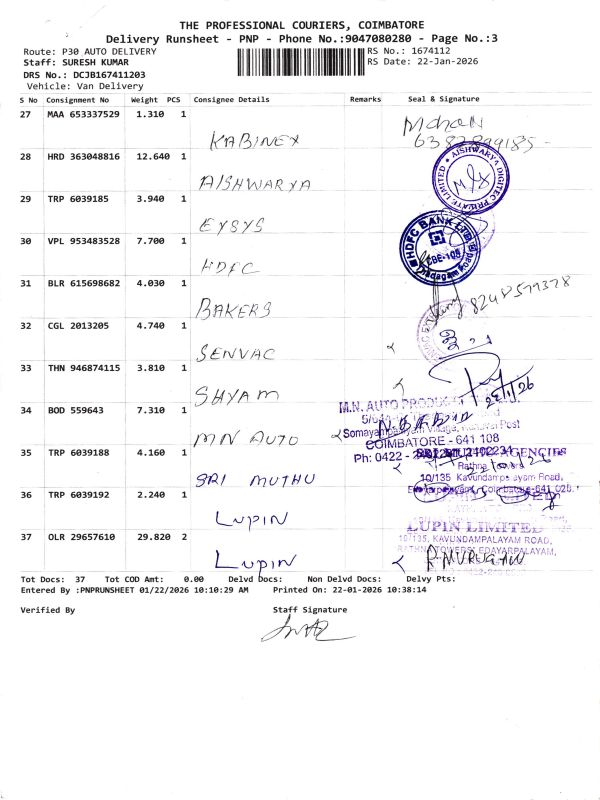 THE PROFESSIONAL COURIERS, COIMBATORE
Delivery Runsheet - PNP - Phone No.:9047080280 - Page No.:3
Route: P30 AUTO DELIVERY RS No.: 1674112
Staff: SURESH KUMAR RS Date: 22-Jan-2026
DRS No.: DCJB167411203
Vehicle: Van Delivery
S No Consignment No Weight PCS Consignee Details Remarks Seal & Signature
27 MAA 653337529 1.310 1 KABINEX Mohan
28 HRD 363048816 12.640 1 AISHWARYA AISHWARYA DIGITEC PRIVATE LIMITED
29 TRP 6039185 3.940 1 EYSYS
30 VPL 953483528 7.700 1 HDFC HDFC BANK LTD
31 BLR 615698682 4.030 1 BAKERS
32 CGL 2013205 4.740 1 SENVAC
33 THN 946874115 3.810 1 SHYAM 23/1/26
34 BOD 559643 7.310 1 MN AUTO M.N. AUTO
COIMBATORE - 641 108
Ph: 0422 -
35 TRP 6039188 4.160 1 SRI MUTHU AGENCIES
10/135 Kavundampalayam Road,
36 TRP 6039192 2.240 1 LUPIN
LUPIN LIMITED
37 OLR 29657610 29.820 2 LUPIN 10/135, KAVUNDAMPALAYAM ROAD,
EDAYARPALAYAM,
R. MURUGAN
Tot Docs: 37 Tot COD Amt: 0.00 Delvd Docs: Non Delvd Docs: Delvy Pts:
Entered By :PNPRUNSHEET 01/22/2026 10:10:29 AM Printed On: 22-01-2026 10:38:14
Verified By Staff Signature